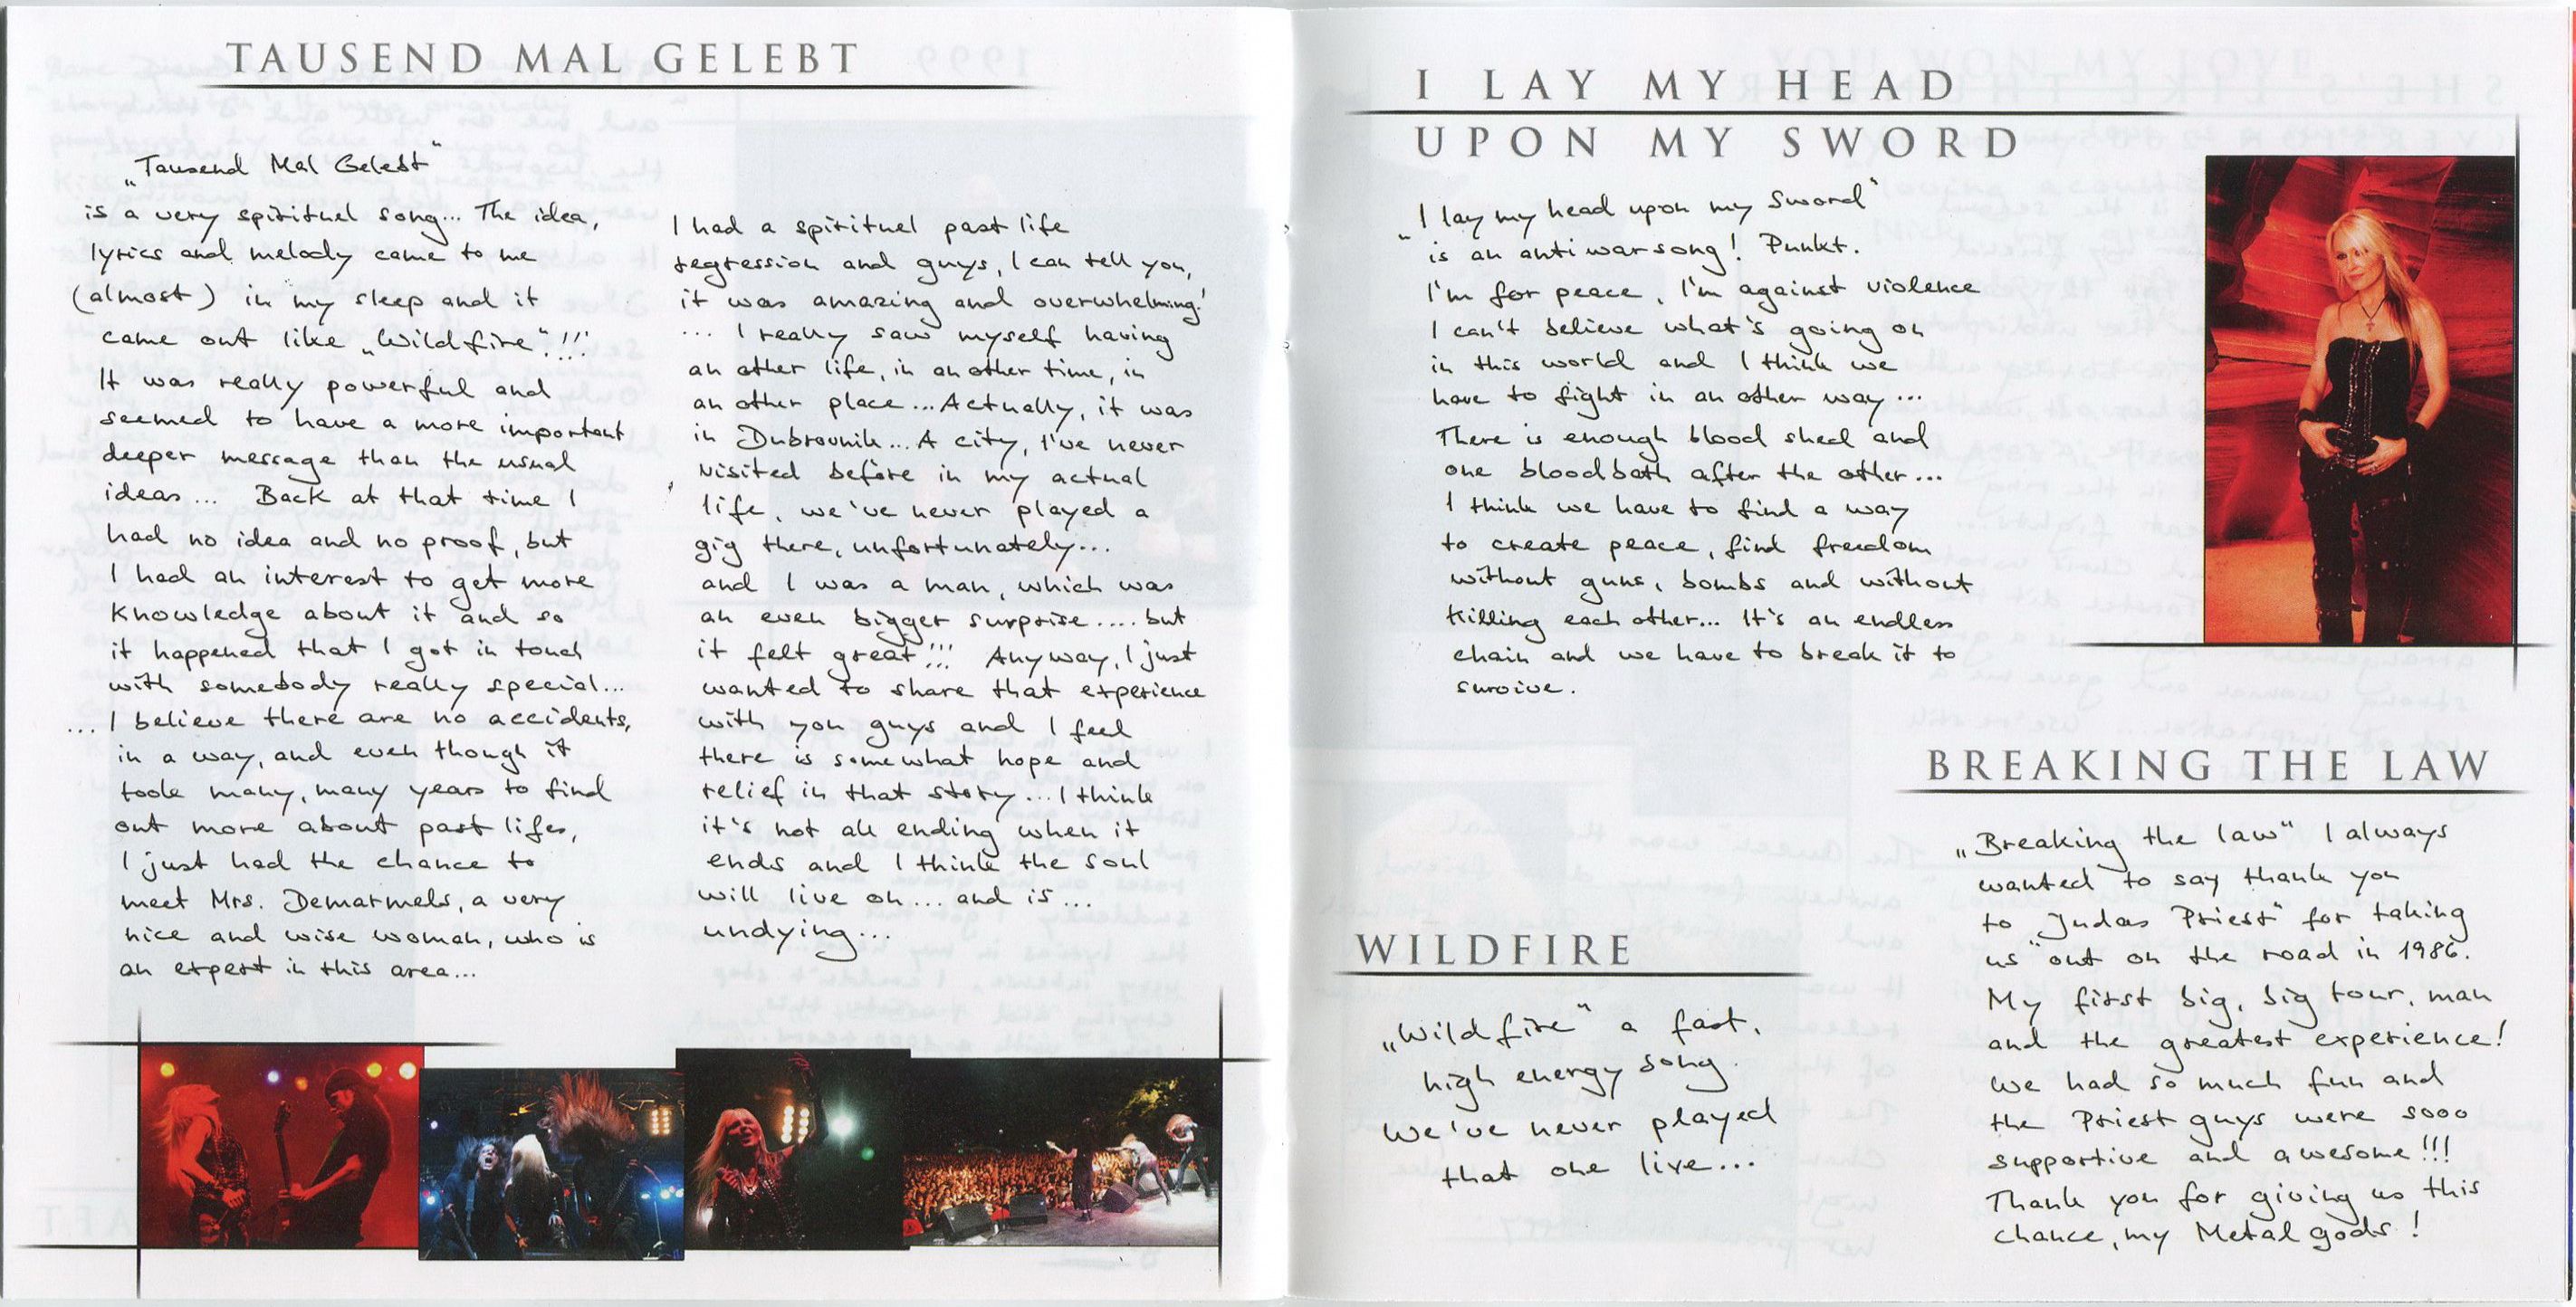 TAUSEND MAL GELEBT
„Tausend Mal Gelebt“
is a very spirituel song... The idea,
lyrics and melody came to me
(almost) in my sleep and it
came out like „Wildfire“!!!
It was really powerful and
seemed to have a more important
deeper message than the usual
ideas... Back at that time I
had no idea and no proof, but
I had an interest to get more
knowledge about it and so
it happened that I got in touch
with somebody really special...
...I believe there are no accidents,
in a way, and even though it
took many, many years to find
out more about past lifes,
I just had the chance to
meet Mrs. Demarmels, a very
nice and wise woman, who is
an expert in this area...
I had a spirituel past life
regression and guys, I can tell you,
it was amazing and overwhelming!
... I really saw myself having
an other life, in an other time, in
an other place...Actually, it was
in Dubrovnik...A city, I've never
visited before in my actual
life, we've never played a
gig there, unfortunately...
and I was a man, which was
an even bigger surprise.... but
it felt great!!! Anyway, I just
wanted to share that experience
with you guys and I feel
there is somewhat hope and
relief in that story...I think
it's not all ending when it
ends and I think the soul
will live on... and is...
undying...
I LAY MY HEAD
UPON MY SWORD
„I lay my head upon my Sword“
is an anti war song! Punkt.
I'm for peace, I'm against violence
I can't believe what's going on
in this world and I think we
have to fight in an other way...
There is enough blood shed and
one bloodbath after the other...
I think we have to find a way
to create peace, find freedom
without guns, bombs and without
killing each other... It's an endless
chain and we have to break it to
survive.
WILDFIRE
„Wildfire“ a fast,
high energy song.
We've never played
that one live...
BREAKING THE LAW
„Breaking the law“ I always
wanted to say thank you
to „Judas Priest“ for taking
us out on the road in 1986.
My first big, big tour, man
and the greatest experience!
We had so much fun and
the Priest guys were sooo
supportive and awesome!!!
Thank you for giving us this
chance, my Metal gods!